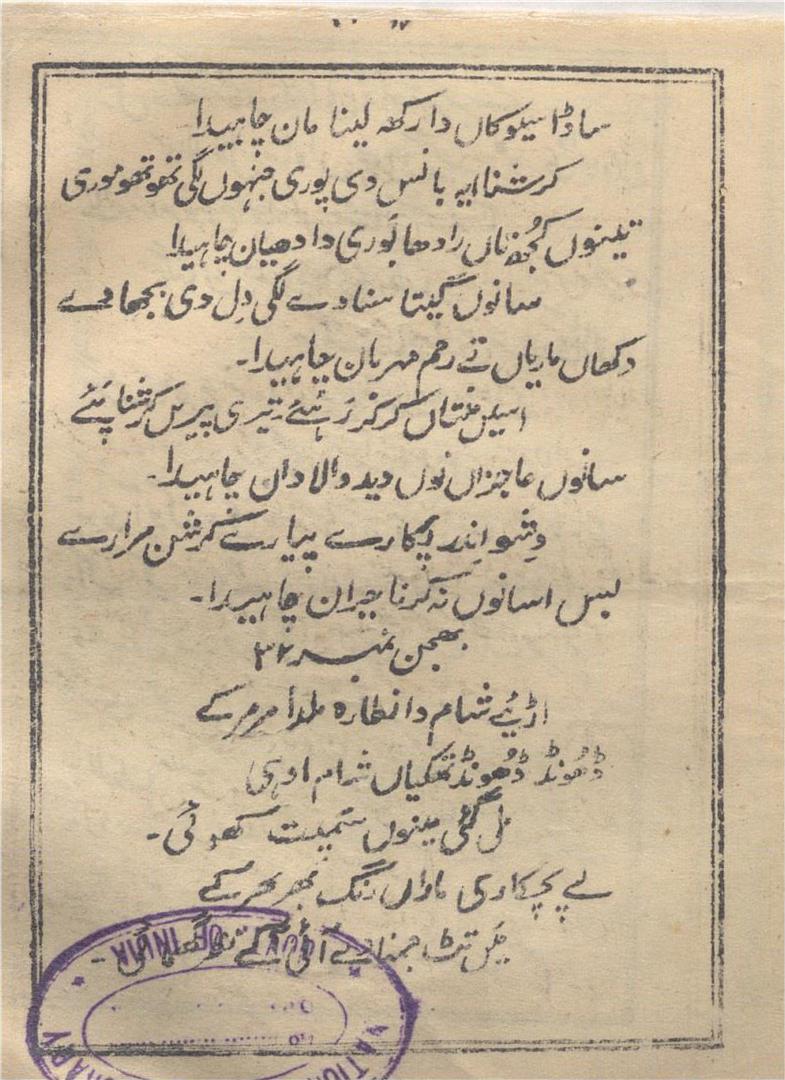 ساڈا سیوکاں دا رکھ لینا مان چاہیدا
کرشنا ایہ بانس دی پوری جنہوں لگی تھوتھو موری
تینوں کُجھ تاں رادھا پوری دا دھیان چاہیدا
سانوں گیتا سنا دے لگی دِل دی بجھا دے
دکھاں ماریاں تے رحم مہربان چاہیدا۔
اسیں منتاں کر کر رہئے۔ تیری پیریں کرشنا پئے
سانوں عاجزاں نوں دید والا دان چاہیدا۔
وِشو اِندر پکارے پیارے کرشن مرارے
بس اسانوں نہ کرنا حیران چاہیدا۔
بھجن نمبر ۳۲
اڑیئے شام دا نظارہ ملدا مر مر کے
ڈھُونڈ ڈھُونڈ تھکیاں شام اوہی
مل گئی مینوں سَمیت کھوئی۔
لے پچکاری ماراں رنگ بھر بھر کے
مَیں تٹ جمنا دے آئی
NATIONAL LIBRARY
GOVT. OF INDIA